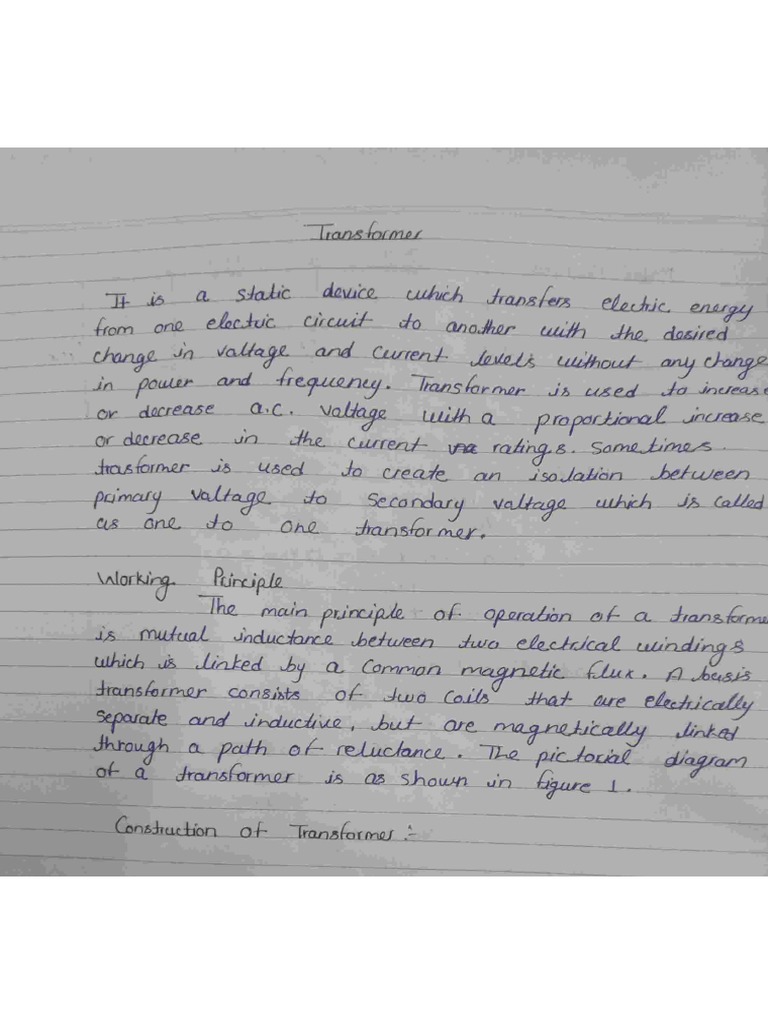 Transformer
It is a static device which transfers electric energy
from one electric circuit to another with the desired
change in voltage and current levels without any change
in power and frequency. Transformer is used to increase
or decrease a.c. voltage with a proportional increase
or decrease in the current ratings. Sometimes
trasformer is used to create an isolation between
primary voltage to secondary voltage which is called
as one to one transformer.
Working Principle
The main principle of operation of a transforme
is mutual inductance between two electrical windings
which is linked by a common magnetic flux. A basis
transformer consists of two coils that are electrically
separate and inductive, but are magnetically linked
through a path of reluctance. The pictorial diagram
of a transformer is as shown in figure 1.
Construction of Transformer :-